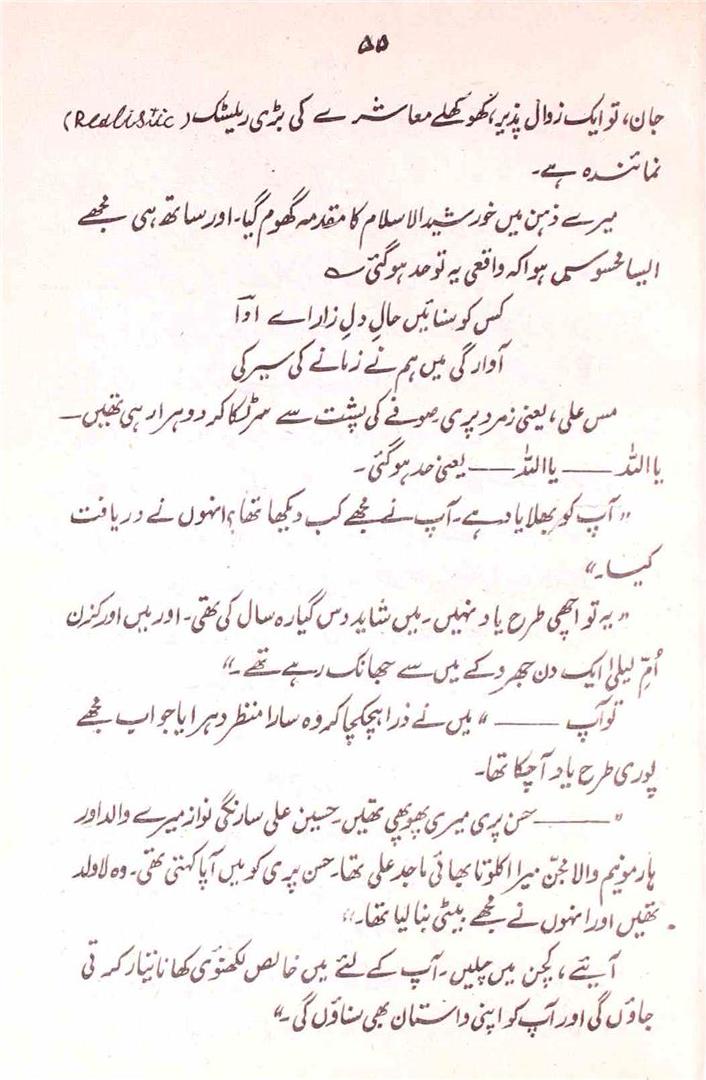 ۵۵
جان، تو ایک زوال پذیر، کھوکھلے معاشرے کی بڑی ریلیسٹک (Realistic)
نمائندہ ہے۔
میرے ذہن میں خورشید الاسلام کا مقدمہ گھوم گیا۔ اور ساتھ ہی مجھے
ایسا محسوس ہوا کہ واقعی یہ تو حد ہو گئی ؎
کس کو سنائیں حالِ دلِ زار اے اداؔ
آوارگی میں ہم نے زمانے کی سیر کی
مس علی، یعنی زمرد پری صوفے کی پشت سے سر ٹکا کر دوہرا رہی تھیں —
یا اللہ —— یا اللہ —— یعنی حد ہو گئی۔
" آپ کو بھلا یاد ہے۔ آپ نے مجھے کب دیکھا تھا؟ انہوں نے دریافت
کیا۔"
" یہ تو اچھی طرح یاد نہیں۔ میں شاید دس گیارہ سال کی تھی۔ اور میں اور کزن
اُمِّ لیلیٰ ایک دن جھروکے میں سے جھانک رہے تھے۔"
تو آپ ——— " میں نے ذرا ہچکچا کر وہ سارا منظر دہرایا جو اب مجھے
پوری طرح یاد آ چکا تھا۔
" ——— حسن پری میری پھوپھی تھیں۔ حسین علی سارنگی نواز میرے والد اور
ہارمونیم والا مجّن میرا اکلوتا بھائی ماجد علی تھا۔ حسن پری کو میں آپا کہتی تھی۔ وہ لاولد
تھیں اور انہوں نے مجھے بیٹی بنا لیا تھا۔"
آیئے، کچن میں چلیں۔ آپ کے لئے میں خالص لکھنوی کھانا تیار کرتی
جاؤں گی اور آپ کو اپنی داستان بھی سناؤں گی۔"